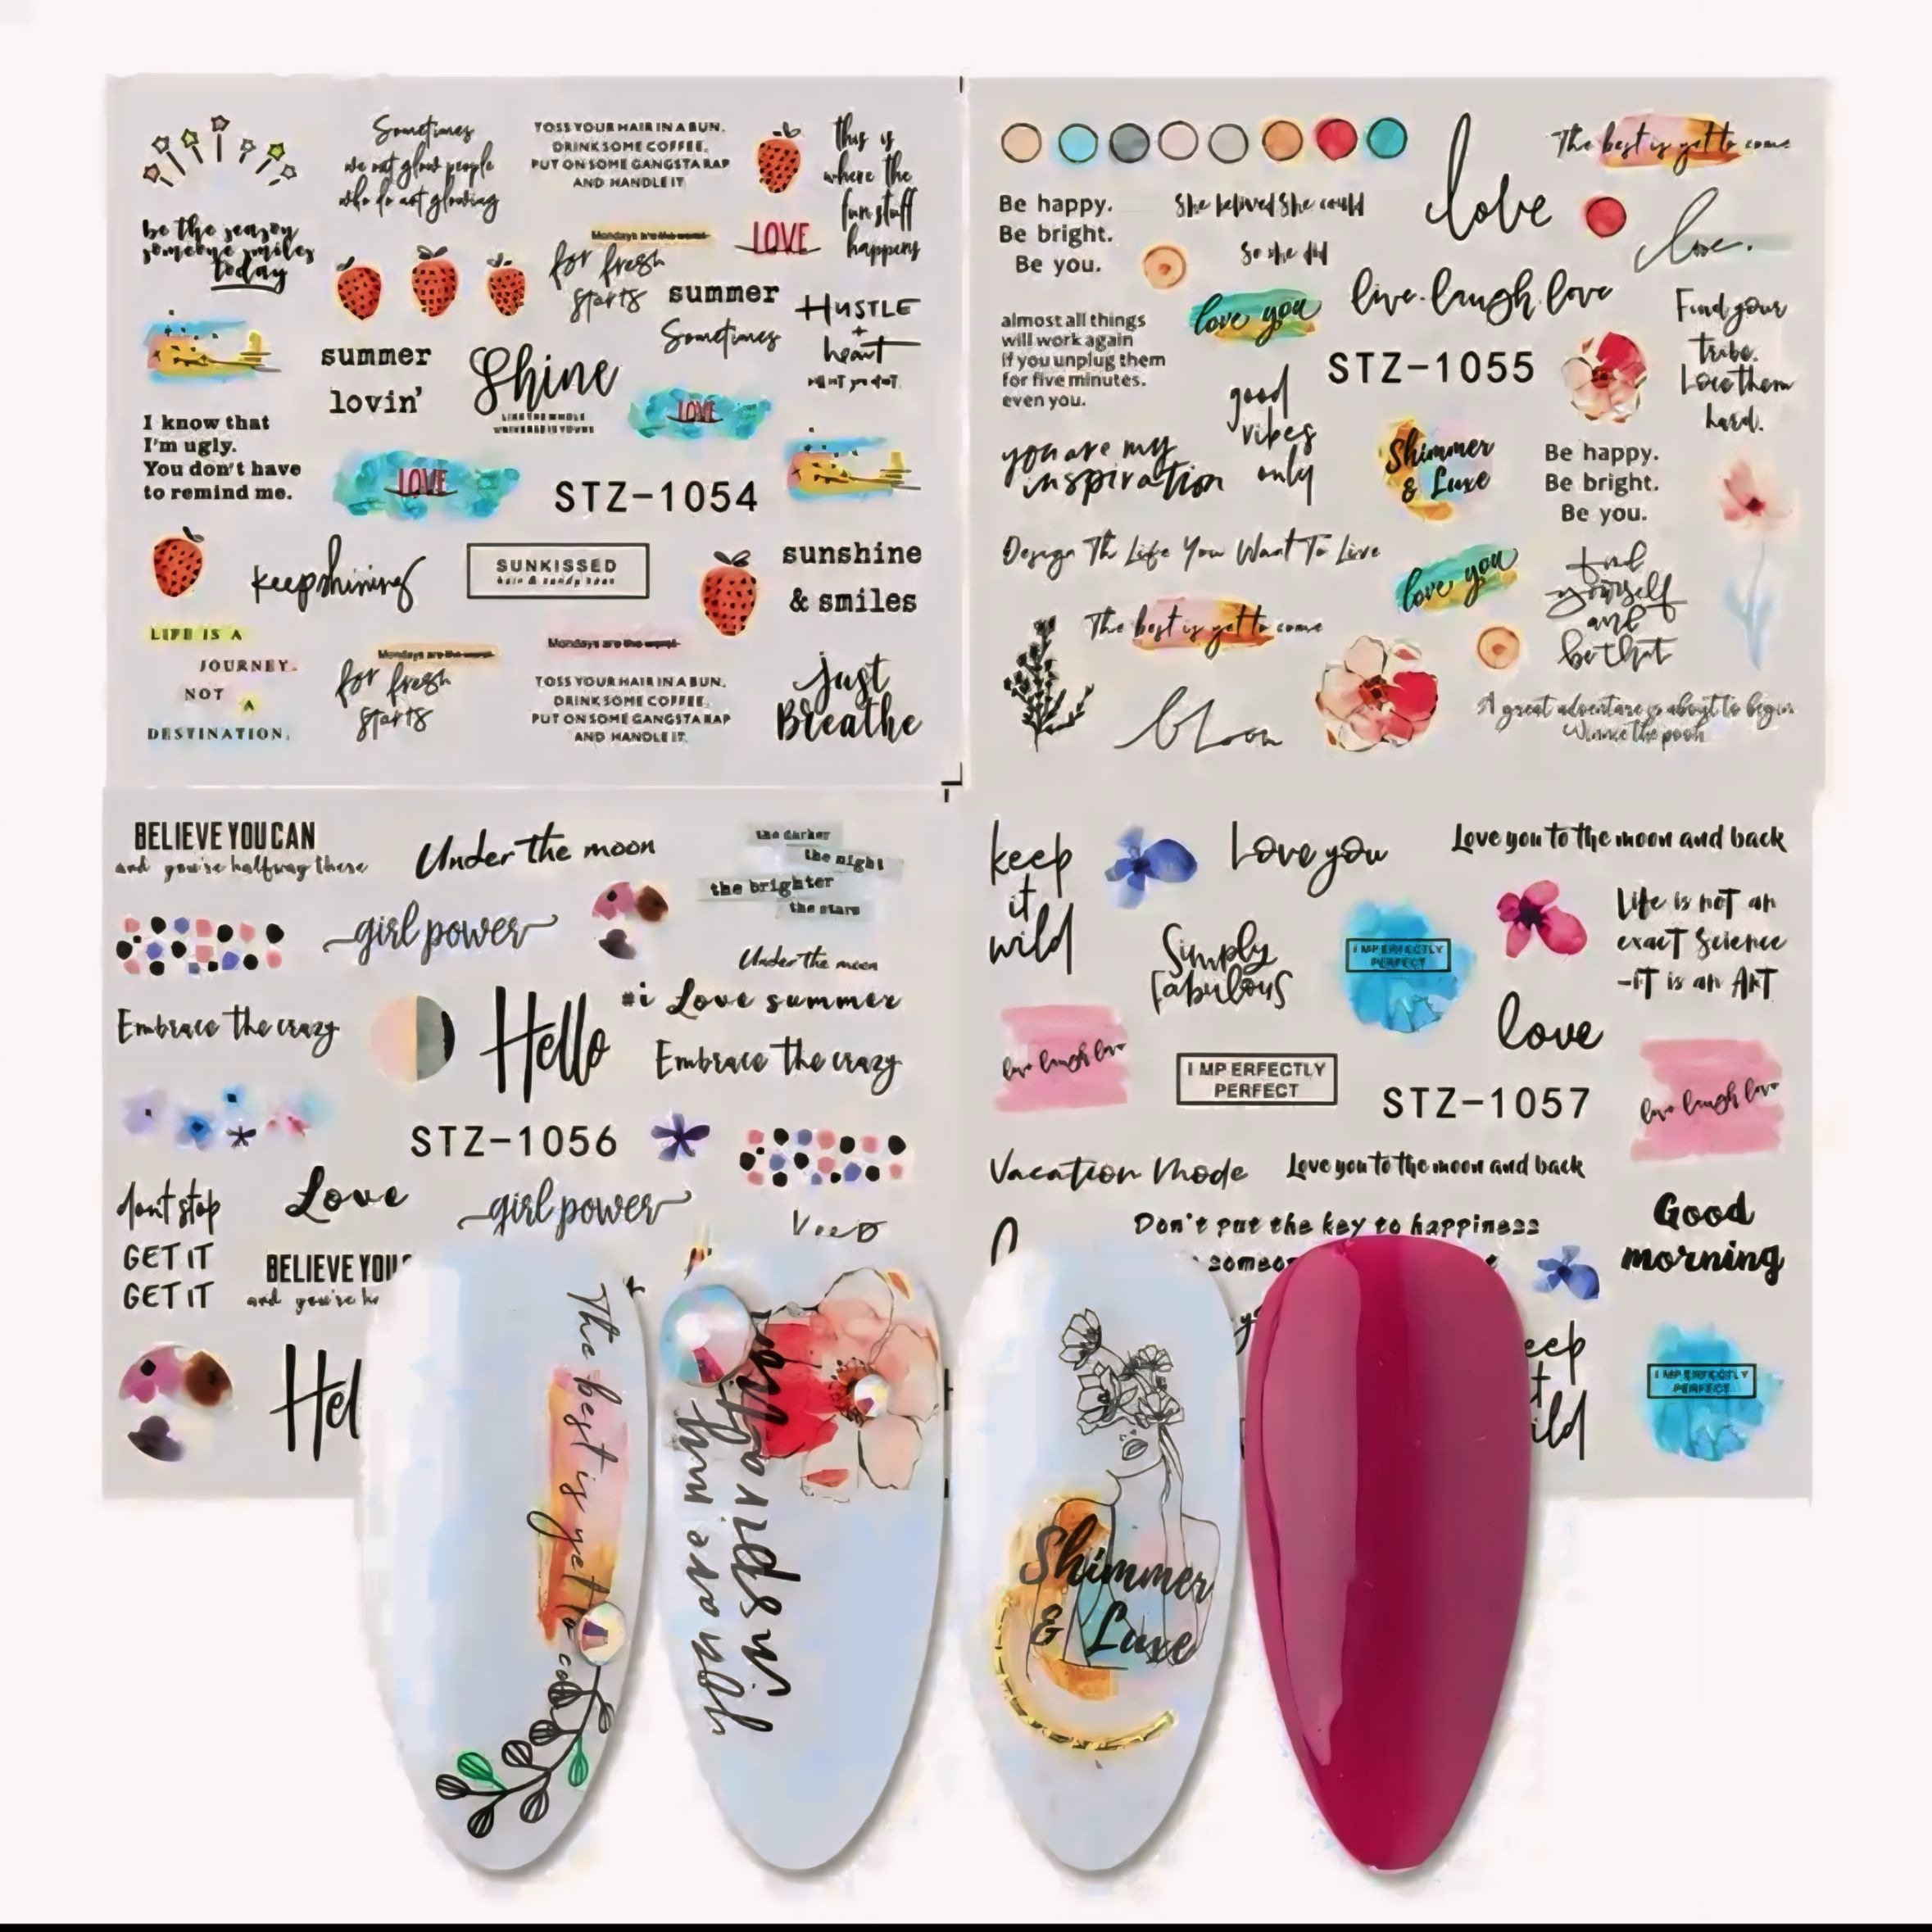 Sometimes
we not glow people
who do not glowing
TOSS YOUR HAIR IN A BUN,
DRINK SOME COFFEE,
PUT ON SOME GANGSTA RAP
AND HANDLE IT
this is
where the
fun stuff
happens
be the season
someone smiles
today
Mondays are the worst
for fresh
starts
LOVE
summer
Sometimes
HUSTLE
+
heart
summer
lovin'
Shine
LIKE THE WHOLE
UNIVERSE IS YOURS
LOVE
I know that
I'm ugly.
You don't have
to remind me.
LOVE
STZ-1054
keep shining
SUNKISSED
sunshine
& smiles
LIFE IS A
JOURNEY.
NOT
A
DESTINATION.
Mondays are the worst
for fresh
starts
Mondays are the worst
TOSS YOUR HAIR IN A BUN,
DRINK SOME COFFEE,
PUT ON SOME GANGSTA RAP
AND HANDLE IT
just
Breathe
love
The best is yet to come
Be happy.
Be bright.
Be you.
She belived She could
So she did
love.
love you
live.laugh.love
Find your
tribe.
Love them
hard.
almost all things
will work again
if you unplug them
for five minutes.
even you.
STZ-1055
good
vibes
only
you are my
inspiration
Shimmer
& Luxe
Be happy.
Be bright.
Be you.
Design Th Life You Want To Live
love you
find
yourself
and
be that
The best is yet to come
bloom
A great adventure is about to begin
Winnie the pooh
BELIEVE YOU CAN
and you're halfway there
Under the moon
the darker
the night
the brighter
the stars
girl power
Under the moon
#i Love summer
Embrace the crazy
Hello
Embrace the crazy
STZ-1056
dont stop
GET IT
GET IT
Love
girl power
BELIEVE YOU
and you're h
Hel
keep
it
wild
Love you
Love you to the moon and back
Simply
fabulous
I MPERFECTLY
PERFECT
Life is not an
exact Science
-IT is an ART
love
love laugh love
I MP ERFECTLY
PERFECT
STZ-1057
love laugh love
Vacation Mode
Love you to the moon and back
Don't put the key to happiness
someo
Good
morning
eep
t
ild
I MPERFECTLY
PERFECT
The best is yet to co
you are my
inspiratio
Shimmer
& Luxe